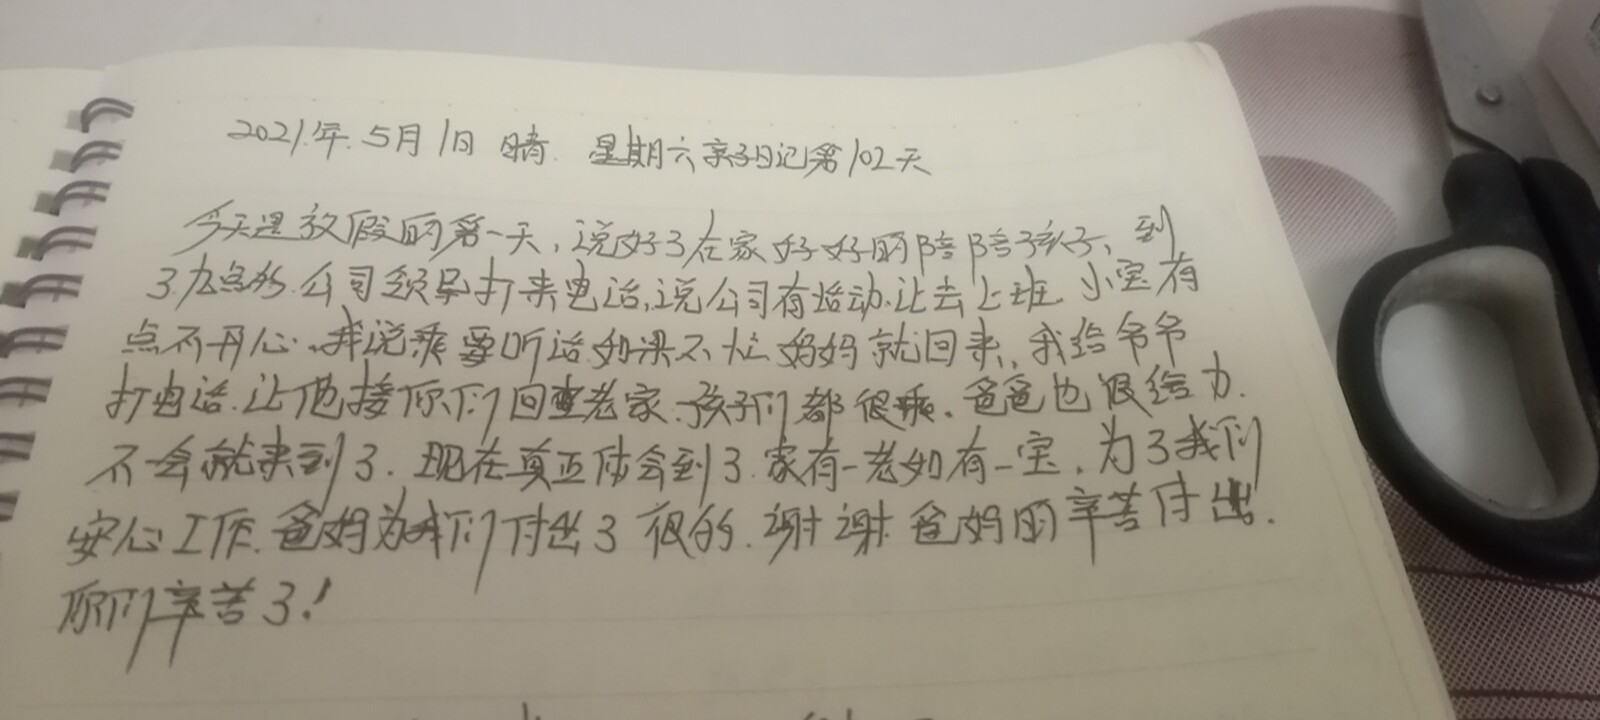 2021.年.5月1日 晴. 星期六亲子日记第102天
今天是放假的第一天,说好了在家好好的陪陪孩子、到
了.九点多.公司领导打来电话,说公司有活动.让去上班.小宝有
点不开心.我说乖要听话.如果不忙妈妈就回来,我给爷爷
打电话.让他接你们回老家.孩子们都很乖.爸爸也很给力.
不一会就来到了.现在真正体会到了.家有一老如有一宝.为了我们
安心工作.爸妈为我们付出了很的.谢谢爸妈的辛苦付出.
你们辛苦了!